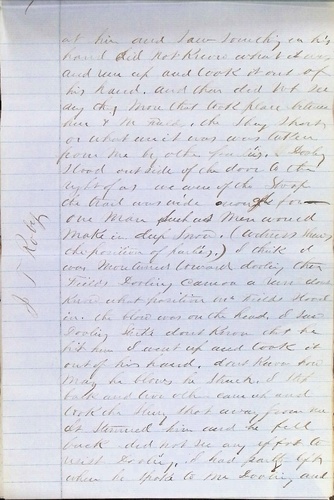 at him and saw something in his
hand did not know what it was
and run up and took it out of
his hand. And then did not see
any thing more that took place between
him & Mr Fields, the slung shot,
or what ever it was was taken
from me by other parties. Dooley
stood outside of the door to the
right of us we were of the Stoop
the trail was wide enough for
one man such as men would
make in deep snow. (Witness shows
the position of parties.) I think it
was
Fields Dooley came on a run dont
know what position Mr Fields stood
in. the blow was on the head. I saw
Dooley strike dont know that he
hit him I went up and took it
out of his hand. dont know how
many he blows he struck. I step
back and two others came up and
took the slung shot away from me
it stunned him and he fell
back did not see any effort to
resist Dooley. I had
when he spoke to me Dooley and
J T Roby